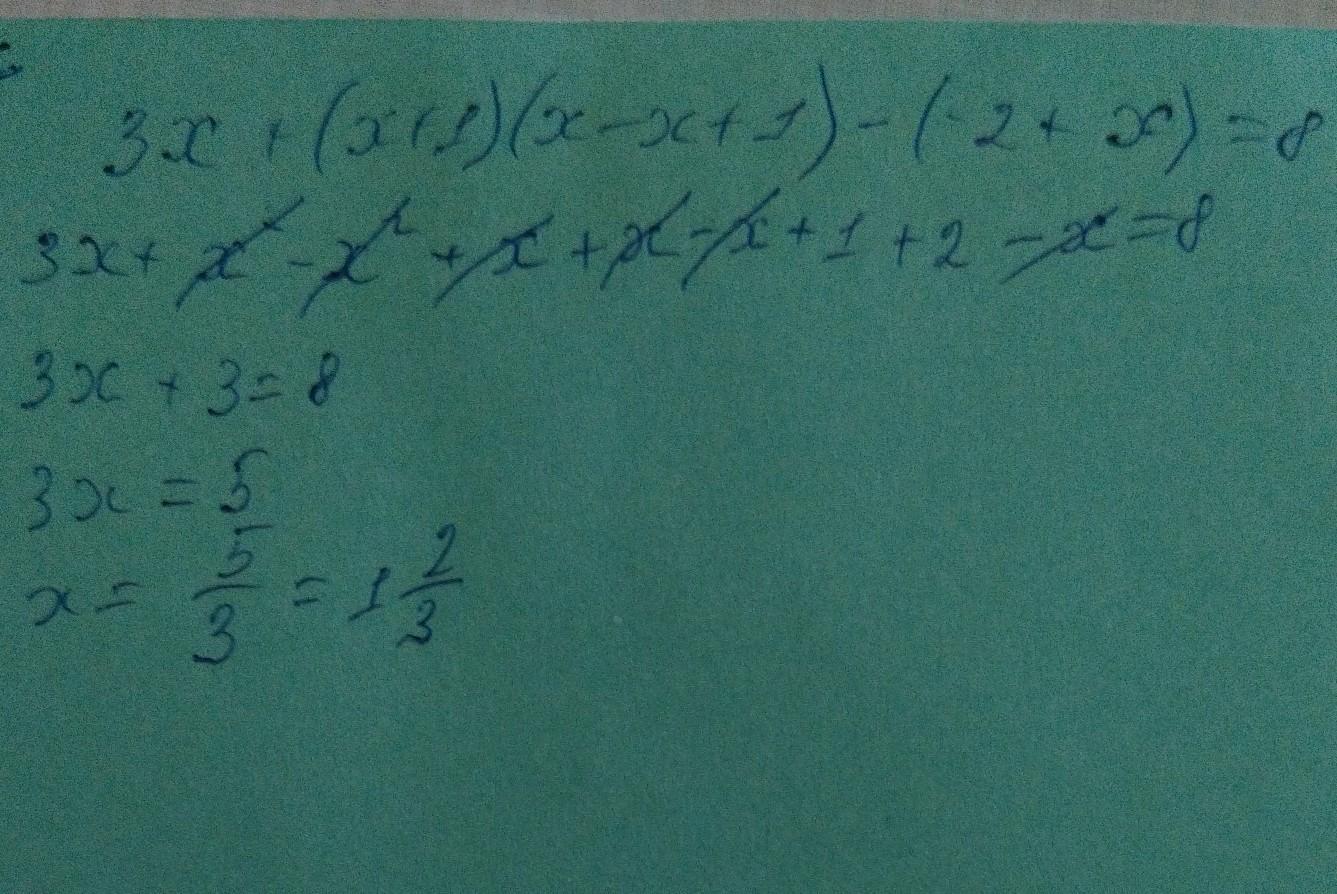 3x + (x+1)(x-x+1) - (-2 + x) = 8
3x + x² - x² + x + x - x + 1 + 2 - x = 8
3x + 3 = 8
3x = 5
x = 5/3 = 1 2/3